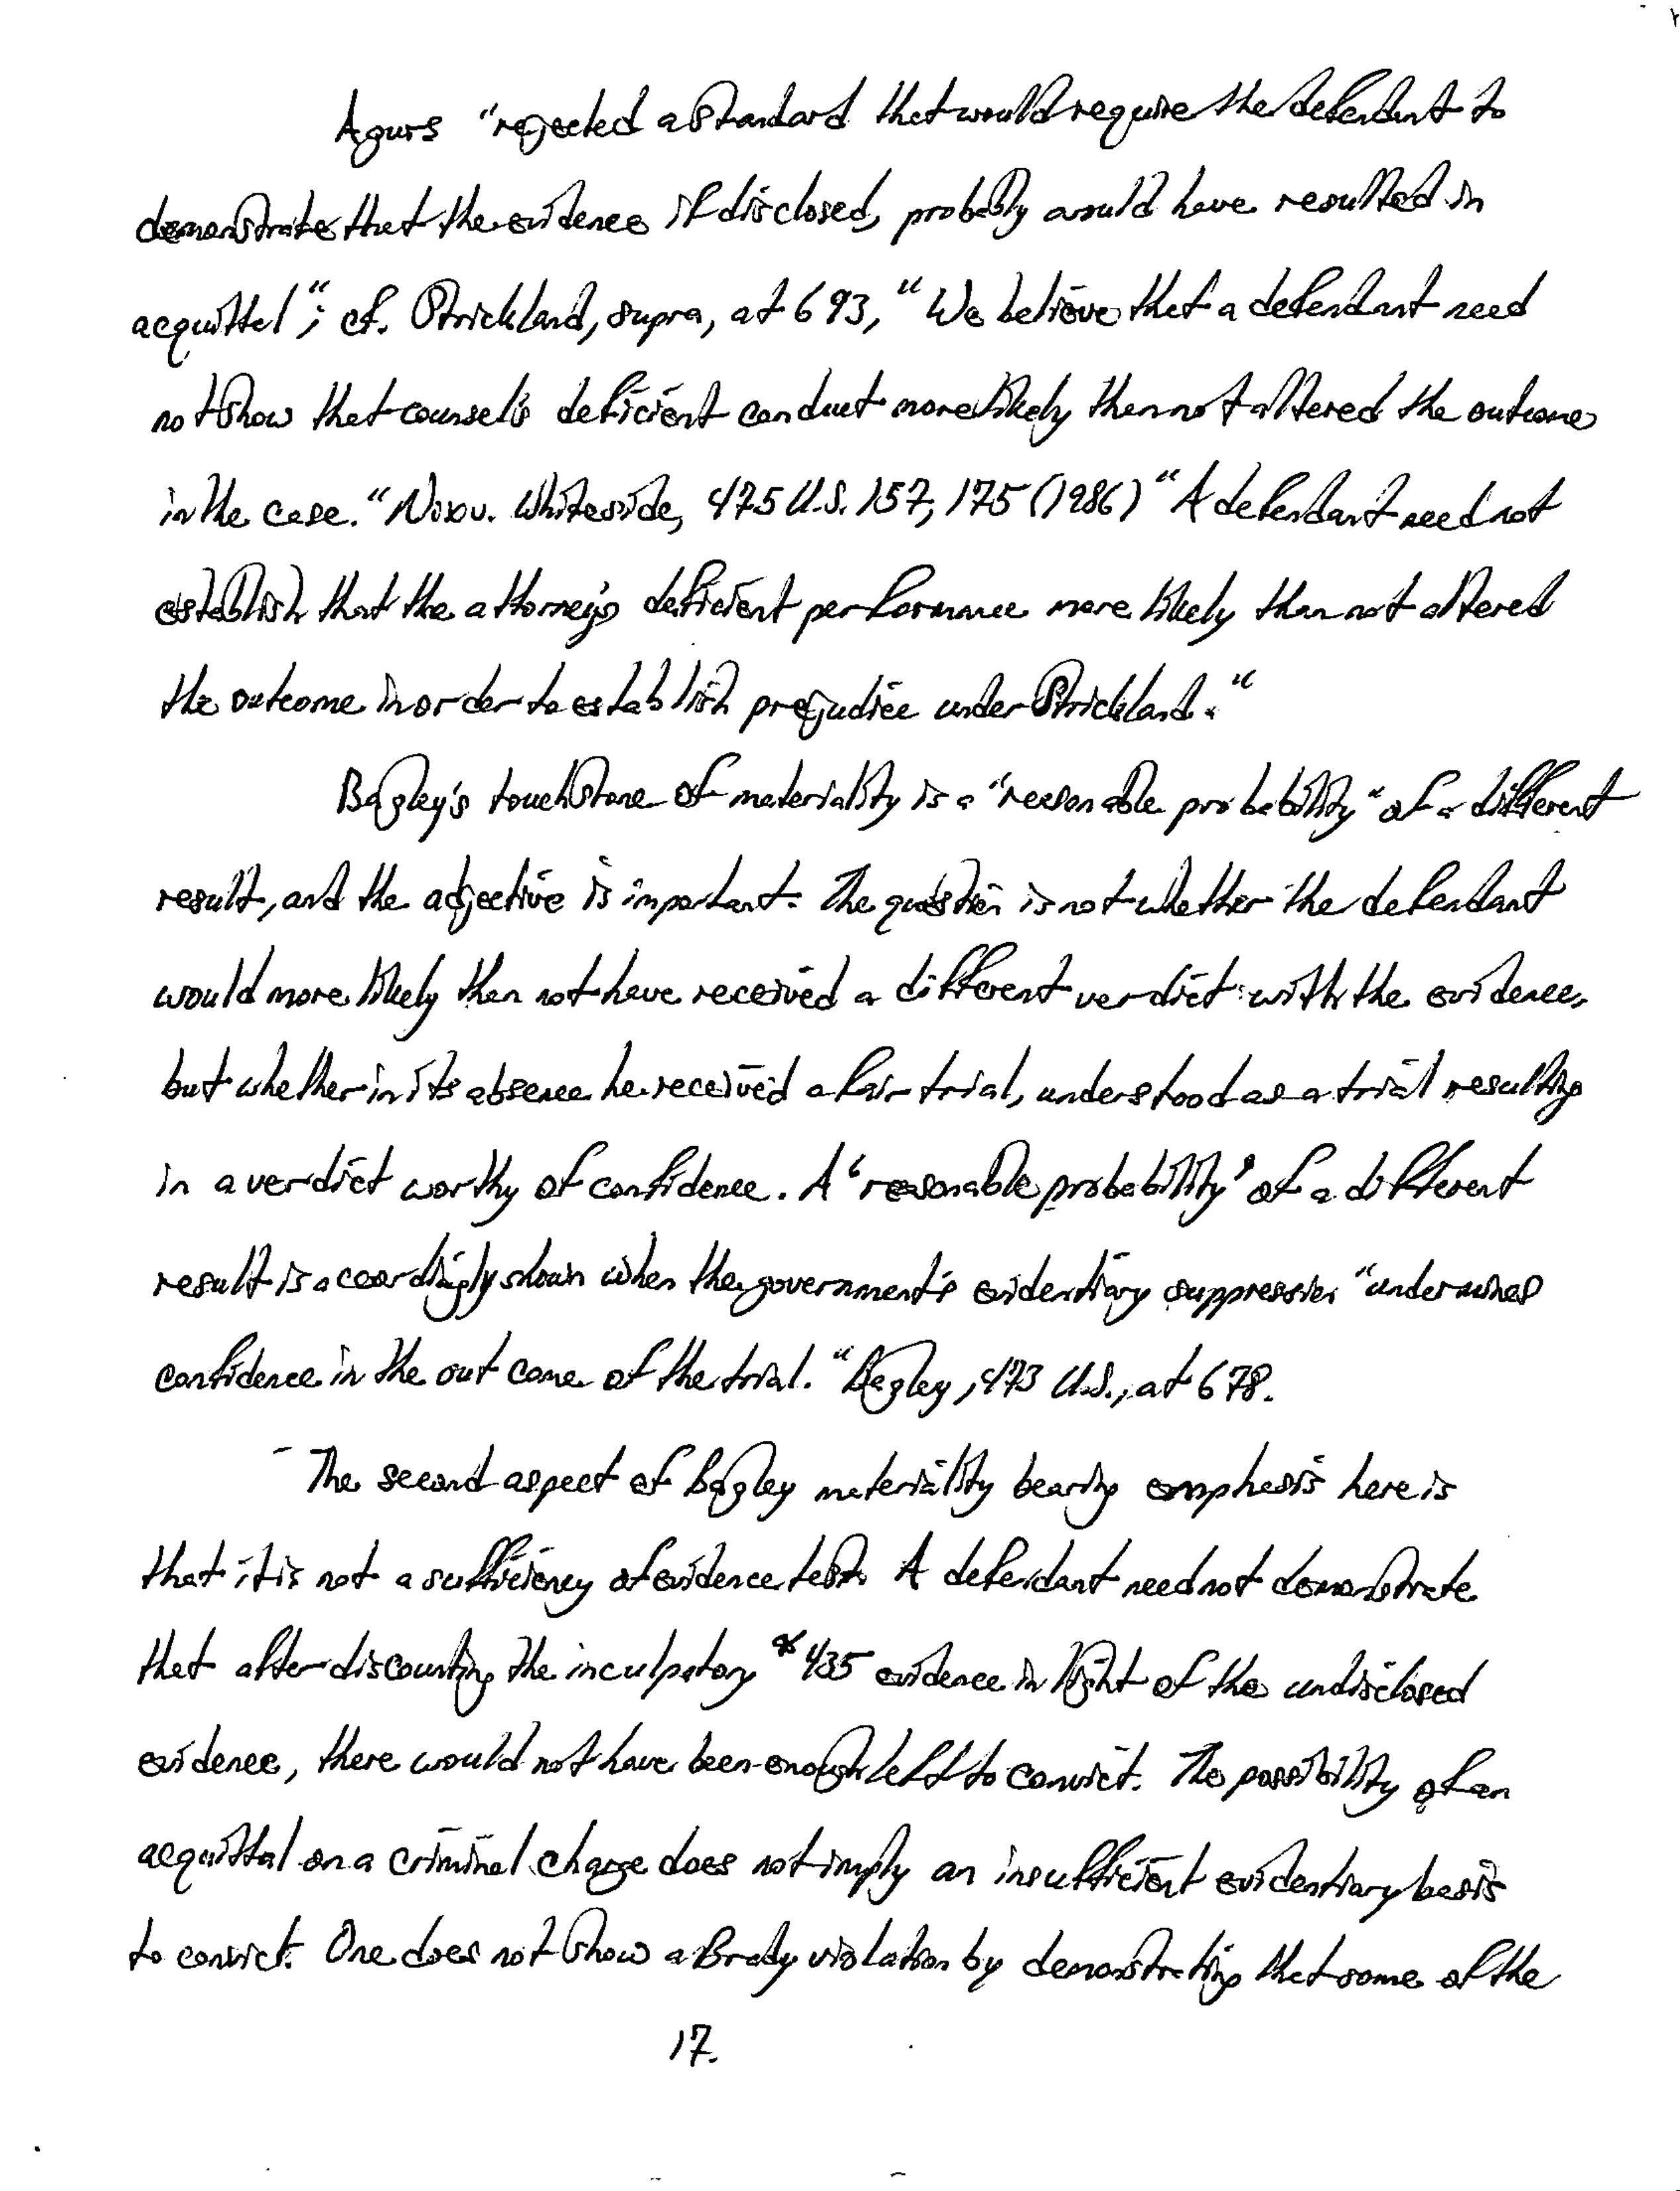 Agurs "rejected a standard that would require the defendant to
demonstrate that the evidence if disclosed, probably would have resulted in
acquittal"; cf. Strickland, supra, at 693, "We believe that a defendant need
not show that counsel's deficient conduct more likely than not altered the outcome
in the case." Nix v. Whiteside, 475 U.S. 157, 175 (1986) "A defendant need not
establish that the attorney's deficient performance more likely than not altered
the outcome in order to establish prejudice under Strickland."
Bagley's touchstone of materiality is a "reasonable probability" of a different
result, and the adjective is important. The question is not whether the defendant
would more likely than not have received a different verdict with the evidence,
but whether in its absence he received a fair trial, understood as a trial resulting
in a verdict worthy of confidence. A 'reasonable probability' of a different
result is accordingly shown when the government's evidentiary suppression "undermines
confidence in the outcome of the trial." Bagley, 473 U.S., at 678.
The second aspect of Bagley materiality bearing emphasis here is
that it is not a sufficiency of evidence test. A defendant need not demonstrate
that after discounting the inculpatory *435 evidence in light of the undisclosed
evidence, there would not have been enough left to convict. The possibility of an
acquittal on a criminal charge does not imply an insufficient evidentiary basis
to convict. One does not show a Brady violation by demonstrating that some of the
17.